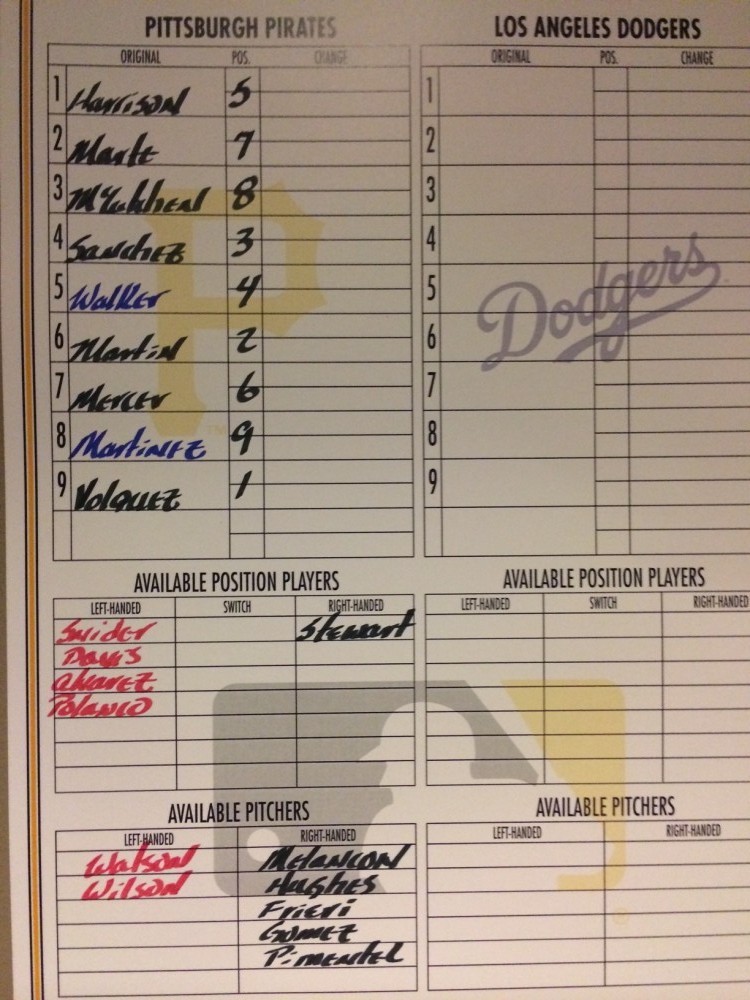 PITTSBURGH PIRATES
ORIGINAL POS. CHANGE
1 Harrison 5
2 Marte 7
3 McCutchen 8
4 Sanchez 3
5 Walker 4
6 Martin 2
7 Mercer 6
8 Martinez 9
9 Volquez 1
AVAILABLE POSITION PLAYERS
LEFT-HANDED SWITCH RIGHT-HANDED
Snider Stewart
Davis
Alvarez
Polanco
AVAILABLE PITCHERS
LEFT-HANDED RIGHT-HANDED
Watson Melancon
Wilson Hughes
Frieri
Gomez
Pimentel
LOS ANGELES DODGERS
ORIGINAL POS. CHANGE
1
2
3
4
5
6
7
8
9
Dodgers
AVAILABLE POSITION PLAYERS
LEFT-HANDED SWITCH RIGHT-HANDED
AVAILABLE PITCHERS
LEFT-HANDED RIGHT-HANDED
P
TM